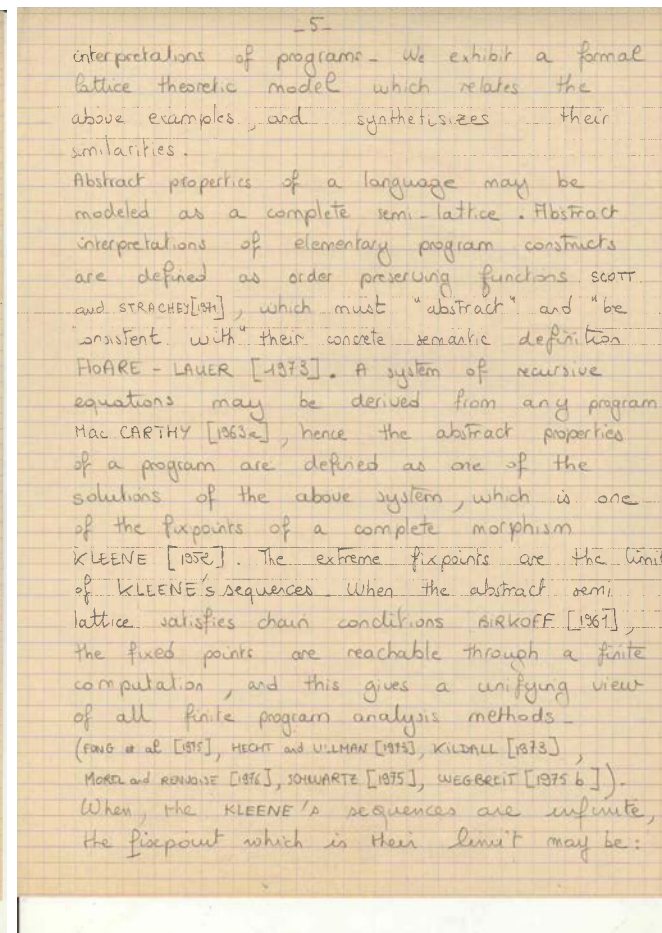 -5-
interpretations of programs- We exhibit a formal
lattice theoretic model which relates the
above examples, and synthetisizes their
similarities.
Abstract properties of a language may be
modeled as a complete semi-lattice. Abstract
interpretations of elementary program constructs
are defined as order preserving functions SCOTT
and STRACHEY[1971], which must "abstract" and "be
onsistent with" their concrete semantic definition
HOARE - LAUER [1973]. A system of recursive
equations may be derived from any program
Mac CARTHY [1963a], hence the abstract properties
of a program are defined as one of the
solutions of the above system, which is one
of the fixpoints of a complete morphism
KLEENE [1952]. The extreme fixpoints are the limit
of KLEENE's sequences. When the abstract semi
lattice satisfies chain conditions BIRKOFF [1961],
the fixed points are reachable through a finite
computation, and this gives a unifying view
of all finite program analysis methods-
(FONG et al [1975], HECHT and ULLMAN [1975], KILDALL [1973],
MOREL and RENVOISE [1976], SCHWARTZ [1975], WEGBREIT [1975 b]).
When, the KLEENE's sequences are infinite,
the fixpoint which is their limit may be: